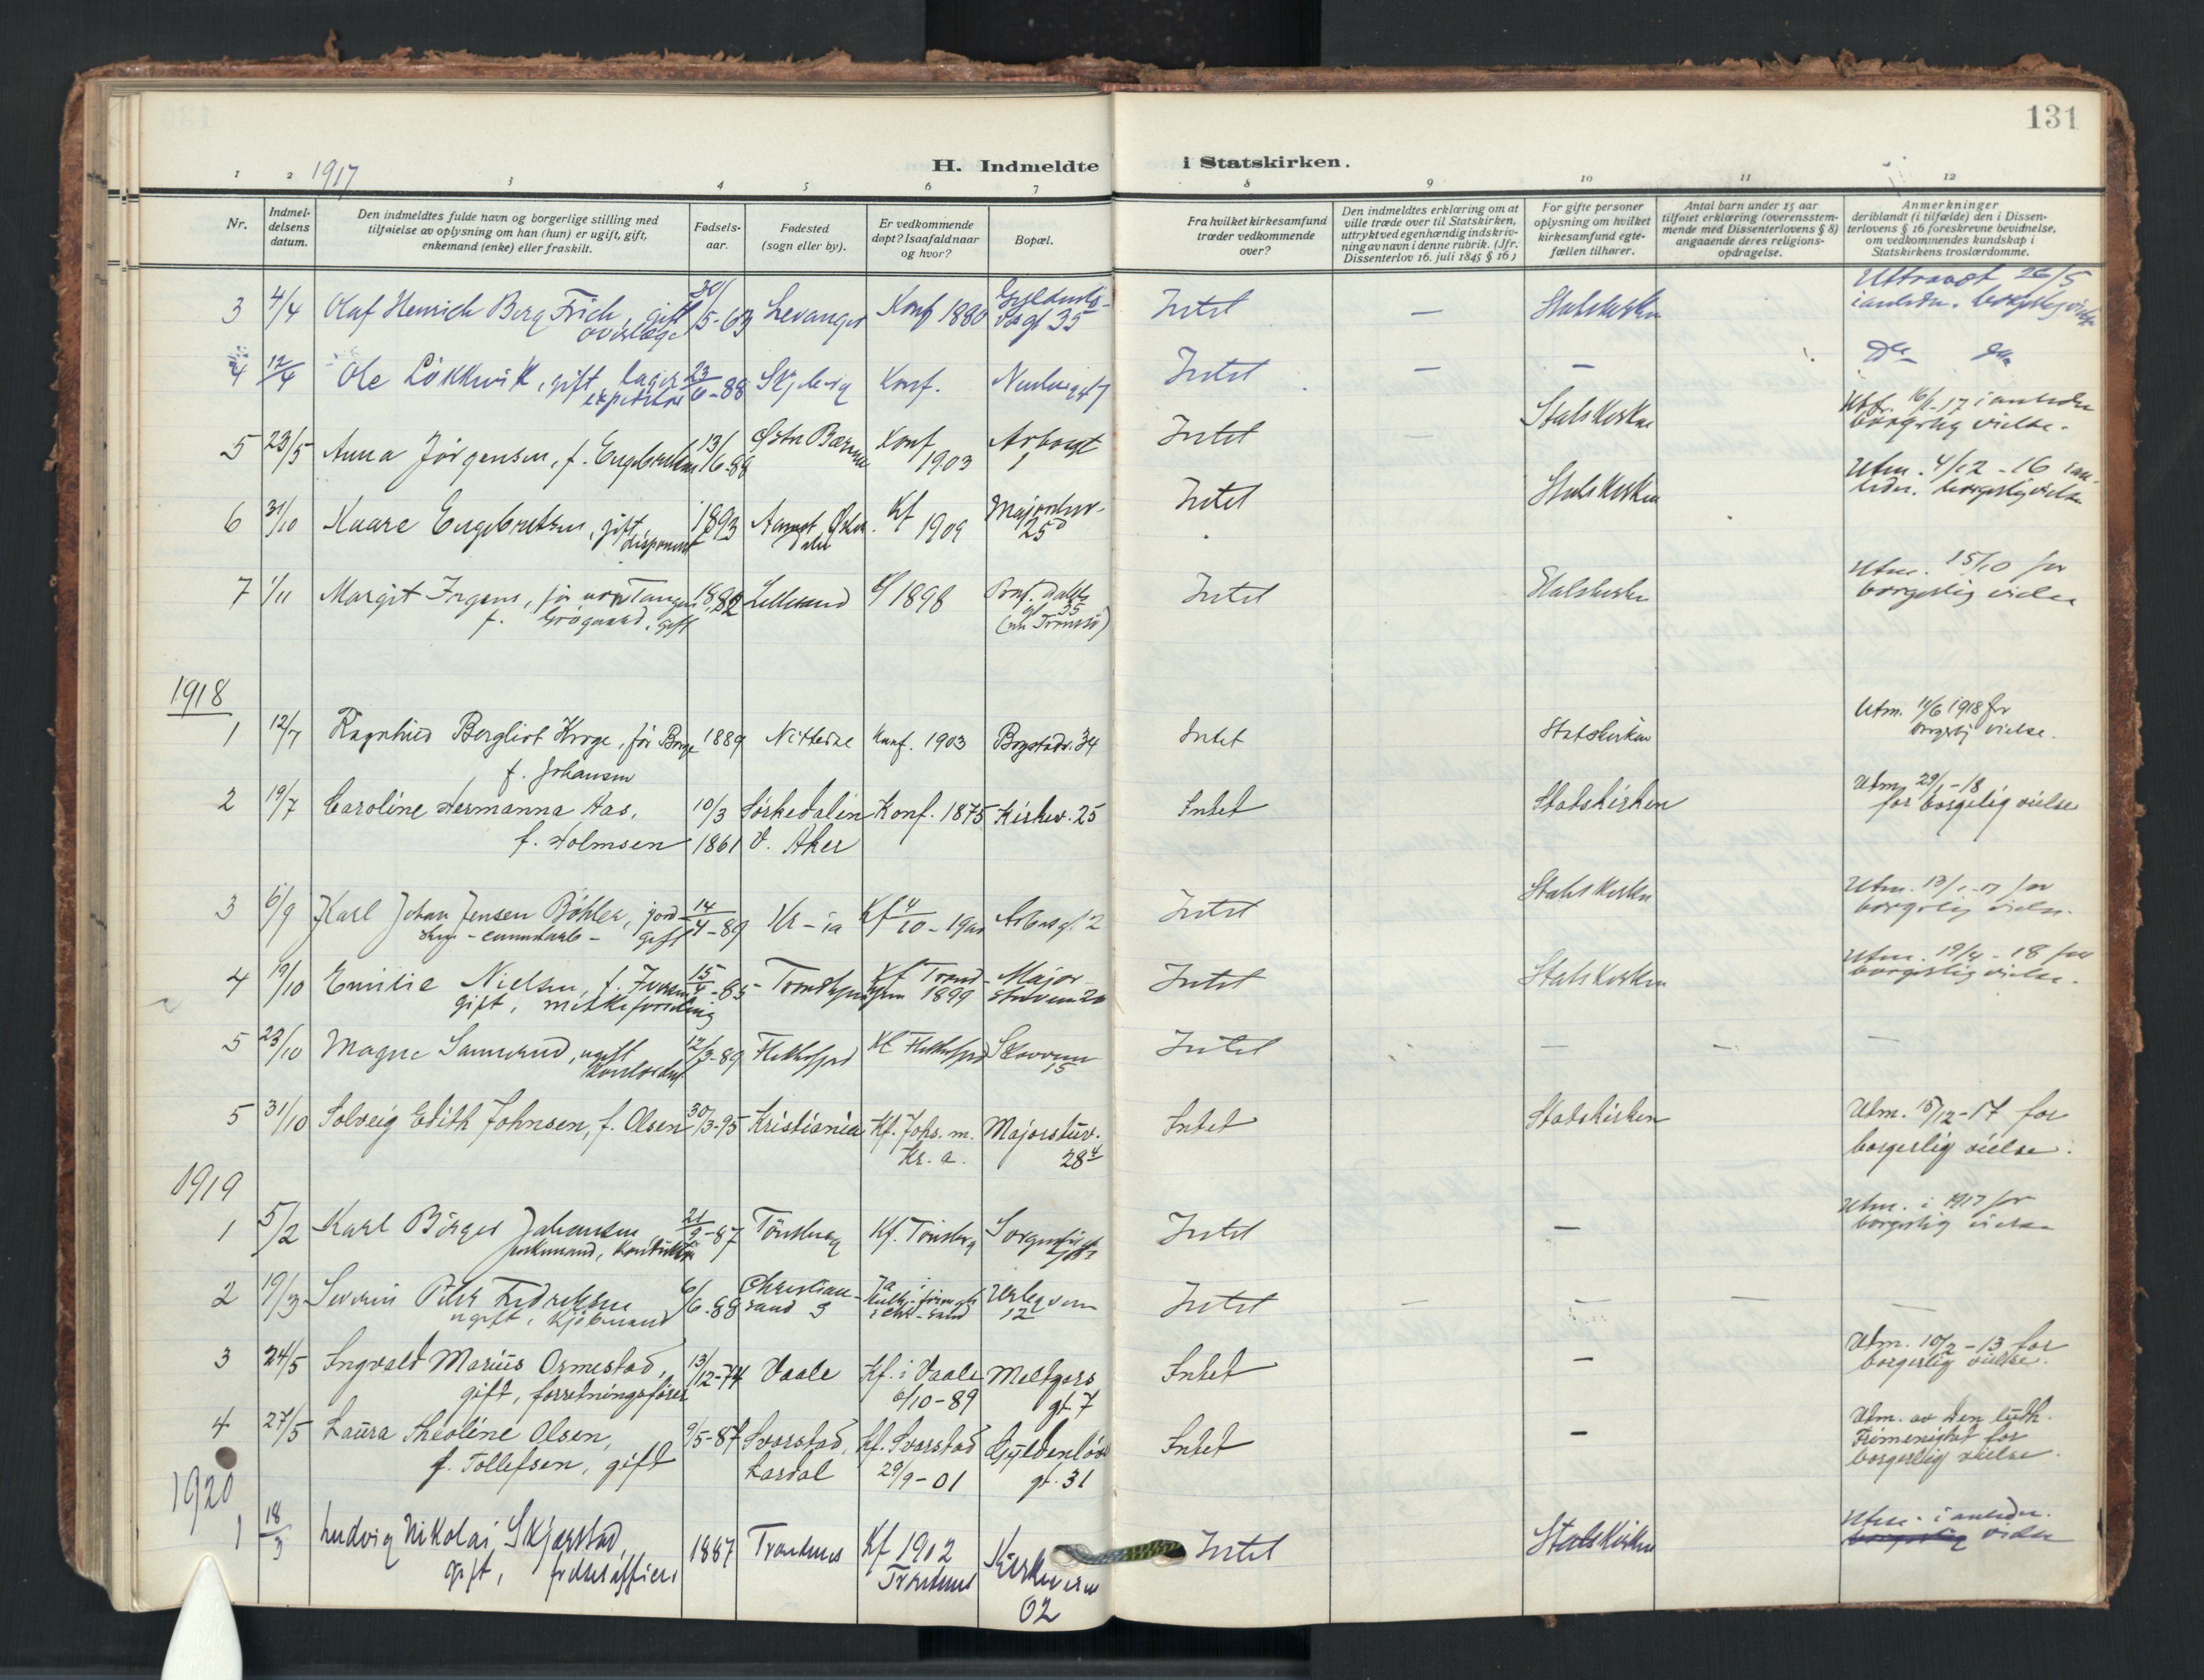 131
1917
H. Indmeldte i Statskirken.
1 2 3 4 5 6 7 8 9 10 11 12
Nr.
Indmel-
delsens
datum.
Den indmeldtes fulde navn og borgerlige stilling med
tilføielse av oplysning om han (hun) er ugift, gift,
enkemand (enke) eller fraskilt.
Fødsels-
aar.
Fødested
(sogn eller by).
Er vedkommende
døpt? Isaafald naar
og hvor?
Bopæl.
Fra hvilket kirkesamfund
træder vedkommende
over?
Den indmeldtes erklæring om at
ville træde over til Statskirken,
uttrykt ved egenhændig indskriv-
ning av navn i denne rubrik. (Jfr.
Dissenterlov 16. juli 1845 § 16)
For gifte personer
oplysning om hvilket
kirkesamfund egte-
fællen tilhører.
Antal barn under 15 aar
tilføiet erklæring (overensstem-
mende med Dissenterlovens § 8)
angaaende deres religions-
opdragelse.
Anmerkninger
deriblandt (i tilfælde) den i Dissen-
terlovens § 16 foreskrevne bevidnelse,
om vedkommendes kundskap i
Statskirkens troslærdomme.
3 4/4 Olaf Henrich Berg Frich, gift 30/5-63 Levanger Konf 1880 Intet — Statskirken Uttraadt 26/5
overlæge 35
4 12/4 Ole Lökkevik, gift, lager- 23/6-88 Skjeberg Konf. Intet — —
expeditør
5 23/5 Anna Jørgensen, f. Engebretsen 13/6-88 Østre Bærum Konf 1903 Arbosgt 1 Intet Statskirken
borgerlig vielse.
6 31/10 Kaare Engebretsen, gift, 1893 Kf 1909 Majorstuv. 25 Intet Statskirken Utm. 4/12-16
disponent
7 1/11 Margit Irgens, før 1882 Lillesand Kf 1898 Prof. Dahls gt 35 Intet Statskirken Utm. 15/10 for
borgerlig vielse
(nu Tromsö)
1918
1 12/7 Ragnhild Bergliot Kroge, før Borge 1889 Nittedal Konf. 1903 Bogstadv. 34 Intet Statskirken Utm. 11/6 1918 for
f. Johansen borgerlig vielse.
2 19/7 Caroline Hermanna Aas, 10/3 Sörkedalen Konf. 1875 Kirkev. 25 Intet Statskirken Utm. 29/1-18
f. Holmsen 1861 V. Aker for borgerlig vielse
3 6/9 Karl Johan Jensen Böhler, 14/4-89 Kr-ia Intet Statskirken
gift borgerlig vielse.
4 19/10 Emilie Nielsen, f. Iversen 15/4-85 Trondhjem Kf Trond- Major- Intet Statskirken Utm. 19/4-18 for
gift, hjem 1899 borgerlig vielse.
5 23/10 Magne Sannerud, ugift 12/3-89 Flekkefjord Kf Flekkefjord Skovvn 15 Intet — — —
5 31/10 Solveig Edith Johnsen, f. Olsen 30/3-95 Kristiania Kf. Johs. m. Majorstuv. Intet Statskirken Utm. 15/12-17 for
Kr. a. 28 4 borgerlig vielse.
1919
1 5/2 Karl Börger Johansen 21/9-87 Tönsberg Kf. Tönsberg Intet — Utm. i 1917 for
enkemand, borgerlig vielse
2 19/3 Severin Peter Fredriksen 6/6-88 Christian- Intet — — — —
ugift, kjöbmand sand S 12
3 24/5 Ingvald Marius Ormestad, 13/12-74 Vaale Kf. i Vaale Meltzers Intet — Utm. 10/2-13 for
gift, forretningsfører 6/10-89 gt. 7 borgerlig vielse.
4 27/5 Laura Theoline Olsen, 9/5-87 Svarstad, Kf. Svarstad Gyldenløves Intet — Utm. av Den luth.
f. Tollefsen, gift Lardal 29/9-01 gt. 31 Frimenighet for
borgerlig vielse.
1920
1 18/3 Ludvig Nikolai Skjærstad, 1887 Trondenes Kf 1902 Kirkeveien Intet Statskirken Utm. i anledn.
gift, Trondenes 02 borgerlig vielse